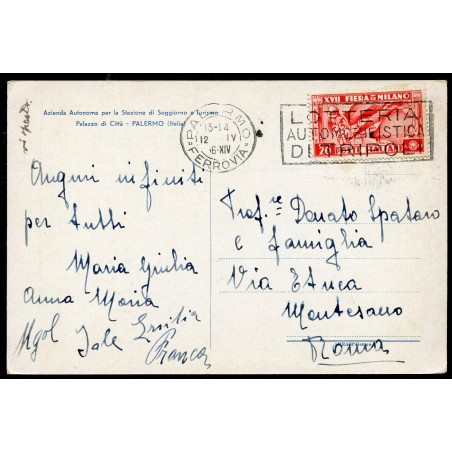 Azienda Autonoma per la Stazione di Soggiorno e Turismo
Palazzo di Città - PALERMO (Italia)
PALERMO
13-14
12 IV
6-XIV
FERROVIA
XVII FIERA DI MILANO
20
LOTTERIA
AUTOMOBILISTICA
DI TRIPOLI
Auguri infiniti
per tutti
Maria Giulia
Anna Maria
Ersilia
Franca
Prof.re Donato Spataro
e famiglia
Via Etnea
Montesano
Roma